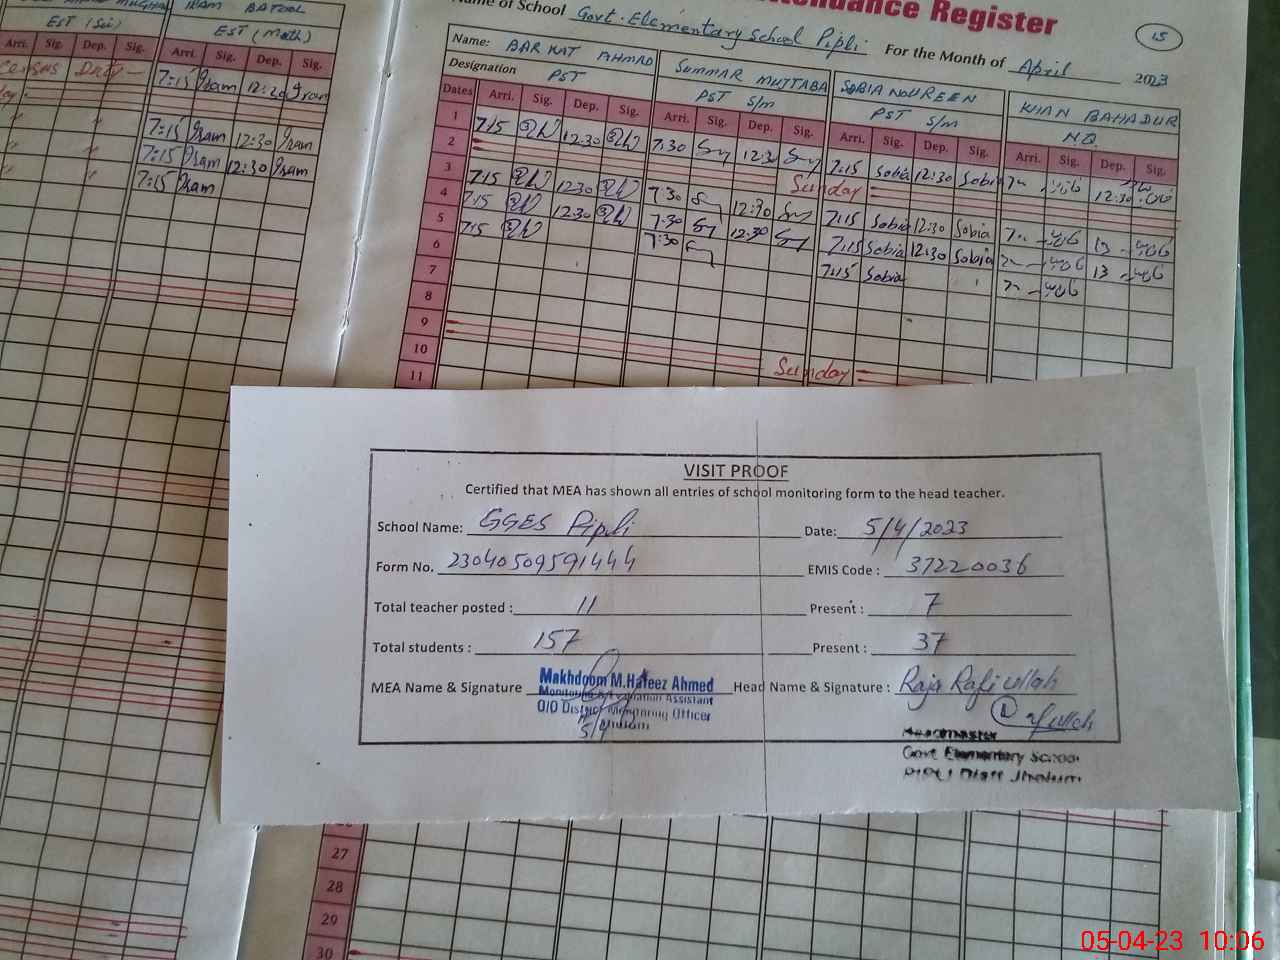 IRAM BATOOL
EST (Sci) EST (Math)
Arri. Sig. Dep. Sig. Arri. Sig. Dep. Sig.
7:15 Iram 12:30 Iram
7:15 Iram 12:30 Iram
7:15 Iram 12:30 Iram
7:15 Iram
Attendance Register
15
Name of School Govt. Elementary School Pipli For the Month of April 2023
Name: BARKAT AHMAD SUMMAR MUJTABA SOBIA NOUREEN KHAN BAHADUR
Designation PST PST S/m PST S/m N.Q.
Dates Arri. Sig. Dep. Sig. Arri. Sig. Dep. Sig. Arri. Sig. Dep. Sig. Arri. Sig. Dep. Sig.
1 7:15 12:30 7:30 12:30 7:15 Sobia 12:30 Sobia 12:30
2 Sunday
3 7:15 12:30 7:30 12:30 7:15 Sobia 12:30 Sobia
4 7:15 12:30 7:30 12:30 7:15 Sobia 12:30 Sobia
5 7:15 7:30 7:15 Sobia
6
7
8
9 Sunday
10
11
VISIT PROOF
Certified that MEA has shown all entries of school monitoring form to the head teacher.
School Name: GGES Pipli Date: 5/4/2023
Form No. 23040509591444 EMIS Code : 37220036
Total teacher posted : 11 Present : 7
Total students : 157 Present : 37
MEA Name & Signature Makhdoom M.Hafeez Ahmed Head Name & Signature : Raja Rafi ullah
Monitoring & Evaluation Assistant
O/O District Monitoring Officer
5/4 Jhelum
Headmaster
Govt Elementary School
Pipli Distt Jhelum
27
28
29
30
05-04-23 10:06